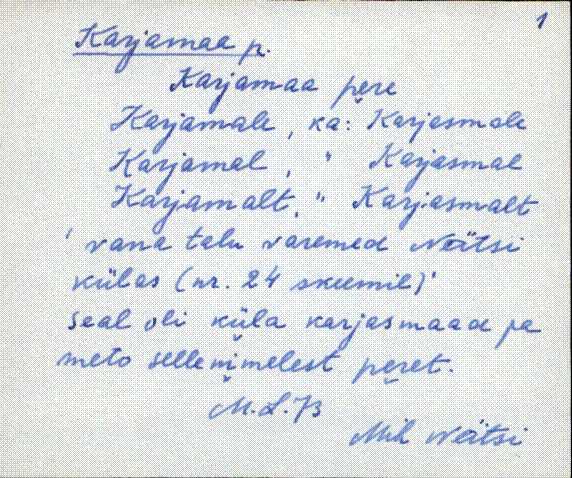 1
Karjamaa p.
Karjamaa pere
Karjamale, ka: Karjasmale
Karjamal, " Karjasmal
Karjamalt, " Karjasmalt
' vana talu varemed Nõtsi
külas (nr. 24 skeemil)'
Seal oli küla karjasmaad ja
meto sellenimelest peret.
M.L. 73
Mih Nõtsi